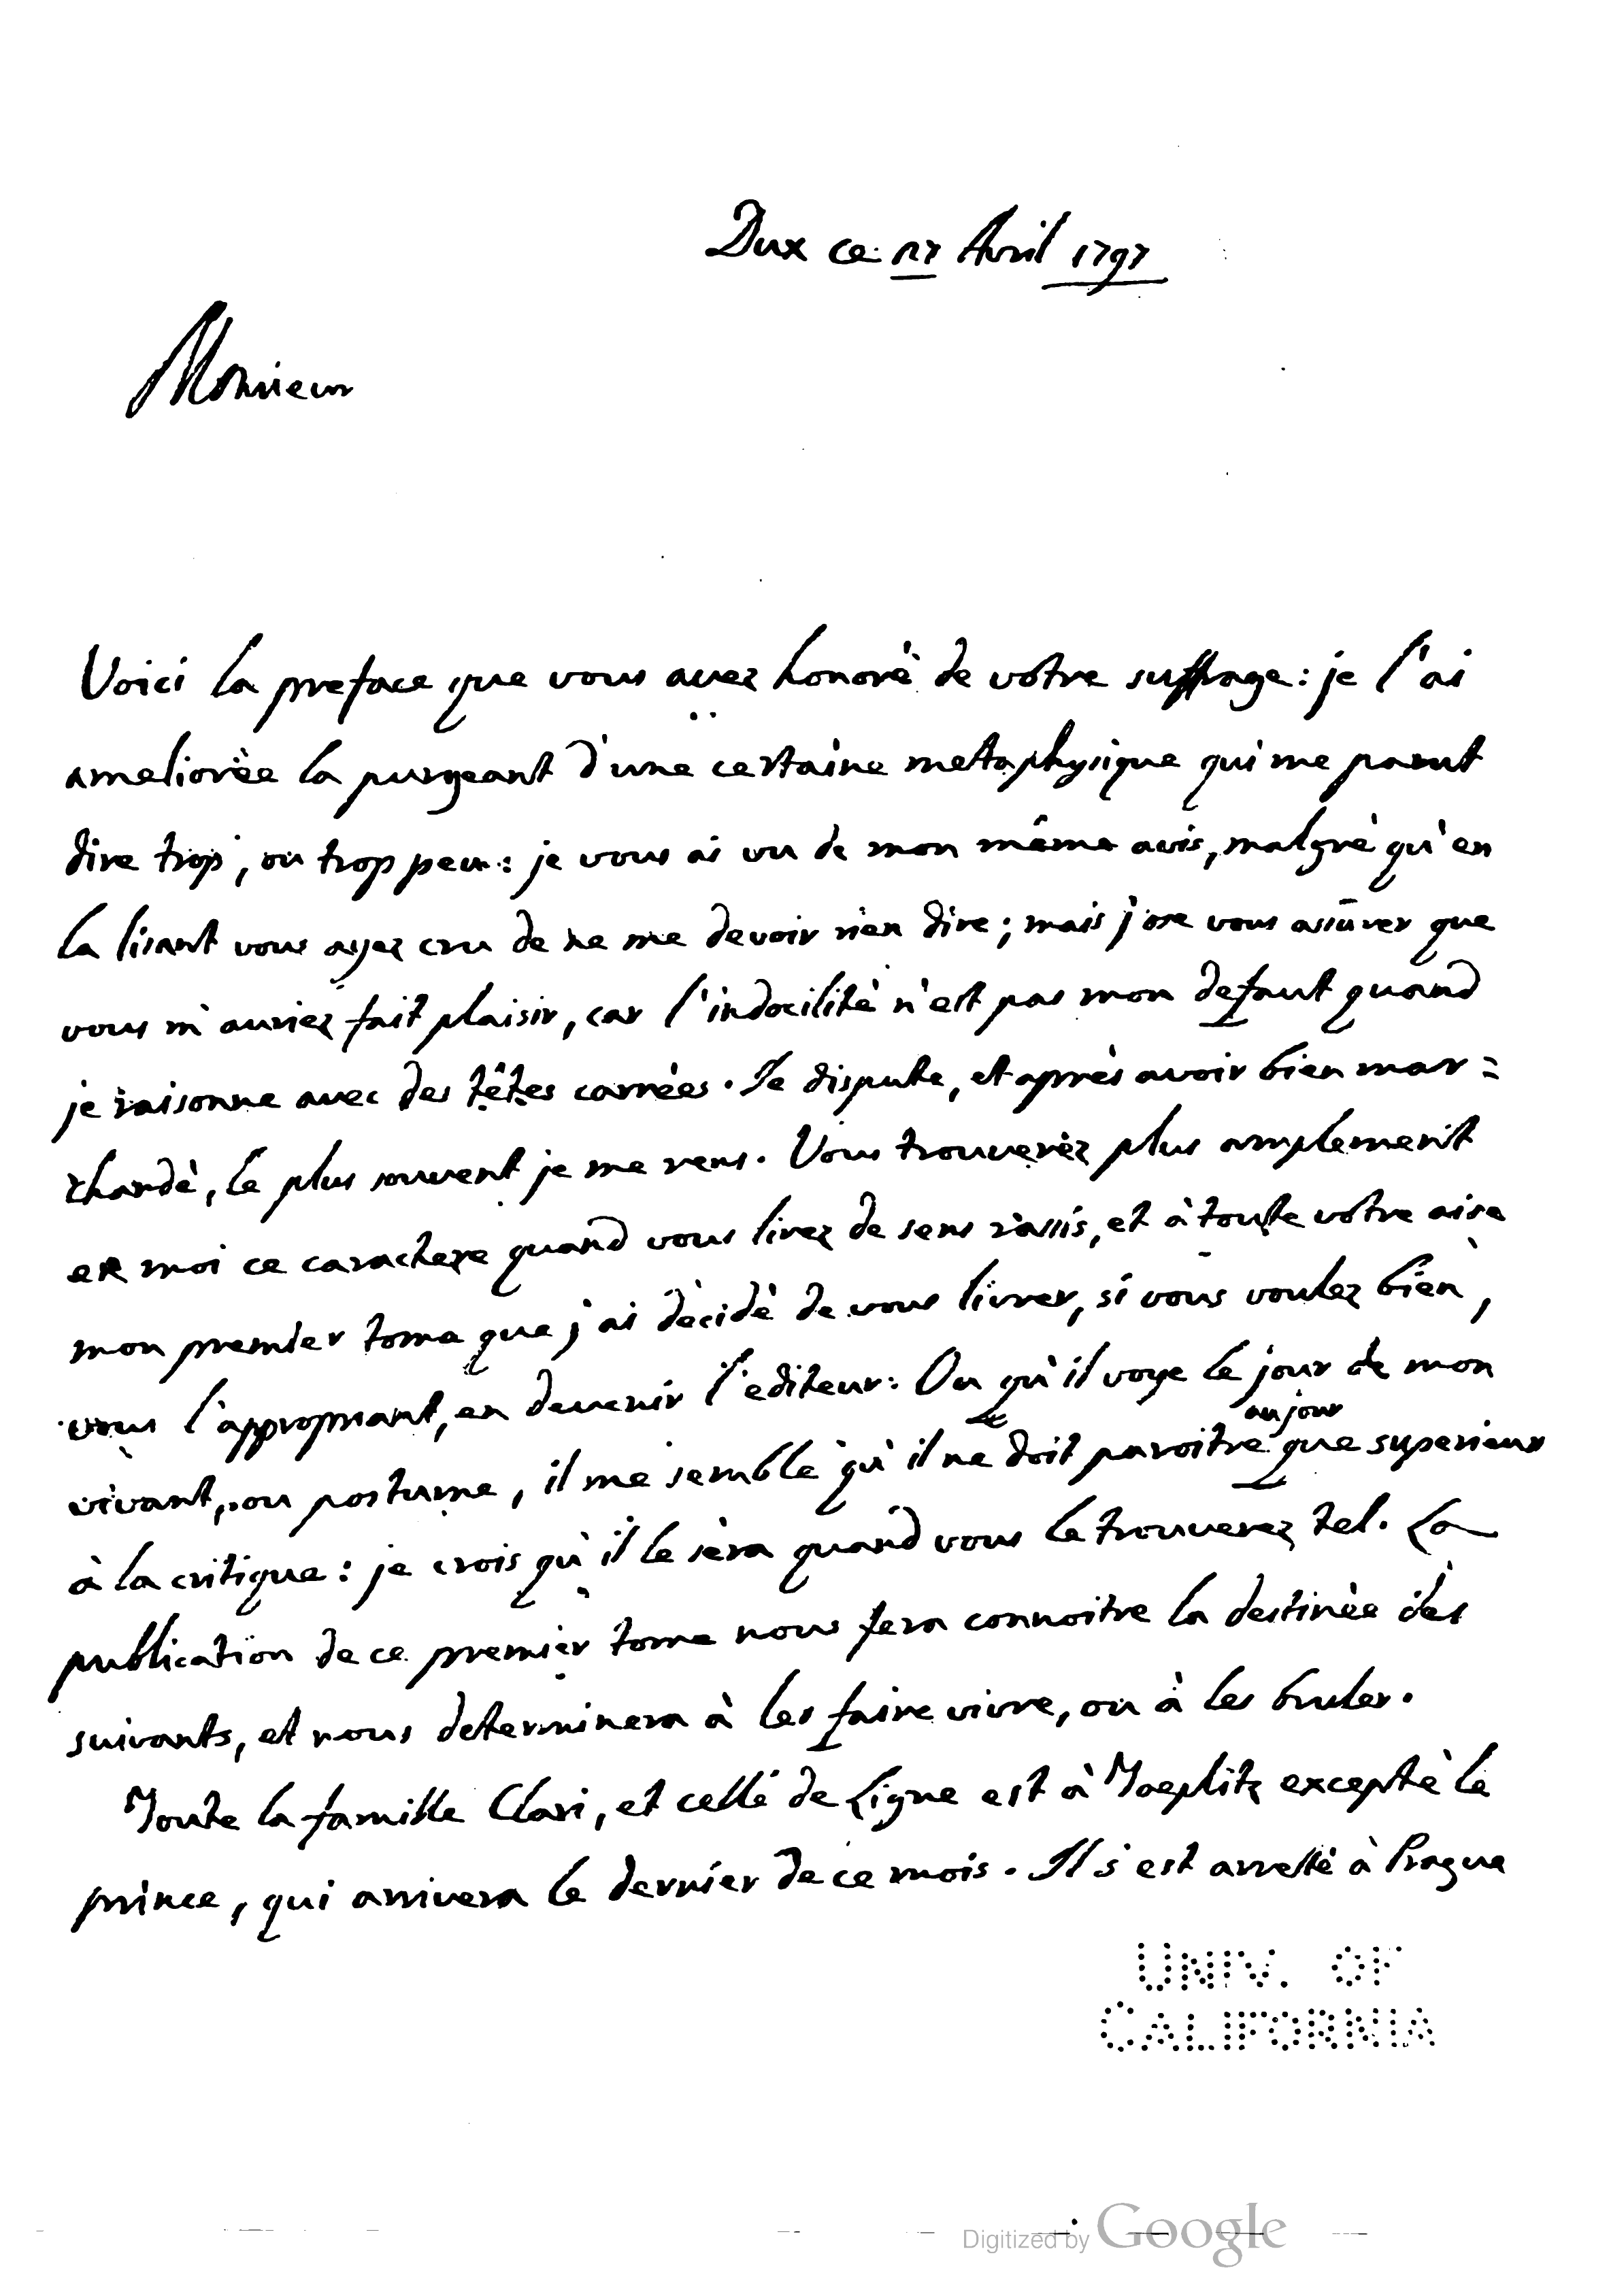 Dux ce 27 Avril 1797
Monsieur
Voici la preface que vous avez honorè de votre suffrage: je l'ai
ameliorèe la purgeant d'une certaine metaphysique qui me parut
dire trop, ou trop peu: je vous ai vu de mon même avis, malgrè qu'en
la lisant vous ayez cru de ne me devoir rien dire; mais j'ose vous assurer que
vous m'auriez fait plaisir, car l'indocilitè n'est pas mon defaut quand
je raisonne avec des têtes carrèes. Je dispute, et après avoir bien mar=
chandè, le plus souvent je me rens. Vous trouverèz plus amplement
en moi ce caractere quand vous lirez de sens rassis, et à toute votre aise
mon premier tome que j'ai dècidè de vous livrer, si vous voulez bien,
vous l'appropriant, en devenir l'editeur: Ou qu'il voye le jour de mon
vivant, ou postume, il me semble qu'il ne doit paroitre au jour que superieur
à la critique: je crois qu'il le sera quand vous le trouverez tel. La
publication de ce premier tome nous fera connoitre la destinèe des
suivants, et nous determinera à les faire vivre, ou à les bruler.
Toute la famille Clari, et celle de Ligne est à Toeplitz exceptè le
prince, qui arrivera le dernier de ce mois. Il s'est arrettè à Prague
UNIV. OF
CALIFORNIA
Digitized by Google